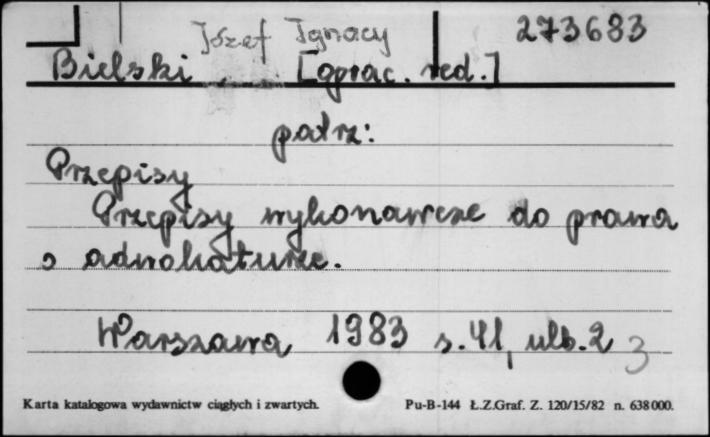 Józef Ignacy 273683
Bielski [oprac. red.]
patrz:
Przepisy
Przepisy wykonawcze do prawa
o adwokaturze.
Warszawa 1983 s. 41, ulb. 2 3
Karta katalogowa wydawnictw ciągłych i zwartych. Pu-B-144 Ł.Z.Graf. Z. 120/15/82 n. 638000.